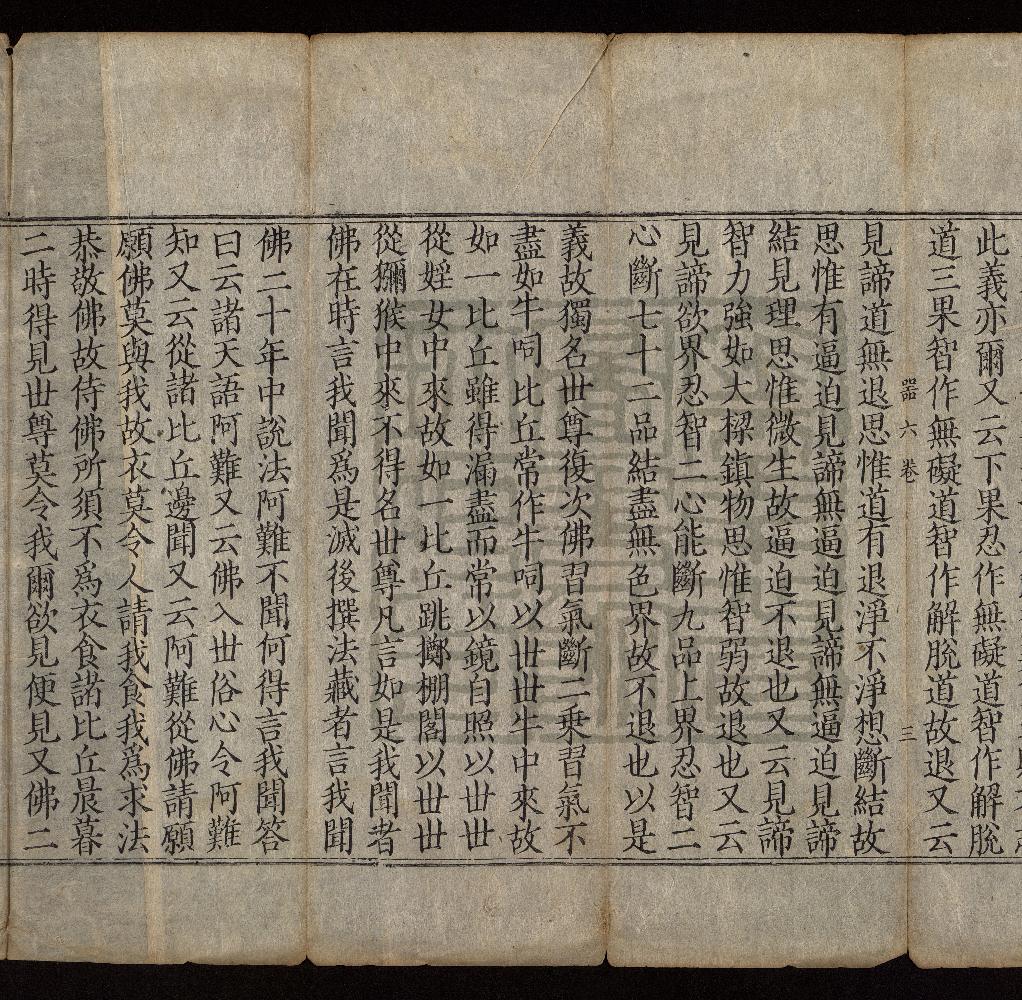 此義亦爾又云下果忍作無礙道智作解脫
道三果智作無礙道智作解脫道故退又云
噐 六 卷 三
見諦道無退思惟道有退淨不淨想斷結故
思惟有逼迫見諦無逼迫見諦無逼迫見諦
結見理思惟微生故逼迫不退也又云見諦
智力強如大樑鎮物思惟智弱故退也又云
見諦欲界忍智二心能斷九品上界忍智二
心斷七十二品結盡無色界故不退也以是
義故獨名世尊復次佛習氣斷二乗習氣不
盡如牛呞比丘常作牛呞以世世牛中來故
如一比丘雖得漏盡而常以鏡自照以世世
從婬女中來故如一比丘跳擲棚閣以世世
從獼猴中來不得名世尊凡言如是我聞者
佛在時言我聞爲是滅後撰法藏者言我聞
佛二十年中說法阿難不聞何得言我聞答
曰云諸天語阿難又云佛入世俗心令阿難
知又云從諸比丘邊聞又云阿難從佛請願
願佛莫與我故衣莫令人請我食我爲求法
恭敬佛故侍佛所須不爲衣食諸比丘晨暮
二時得見世尊莫令我爾欲見便見又佛二